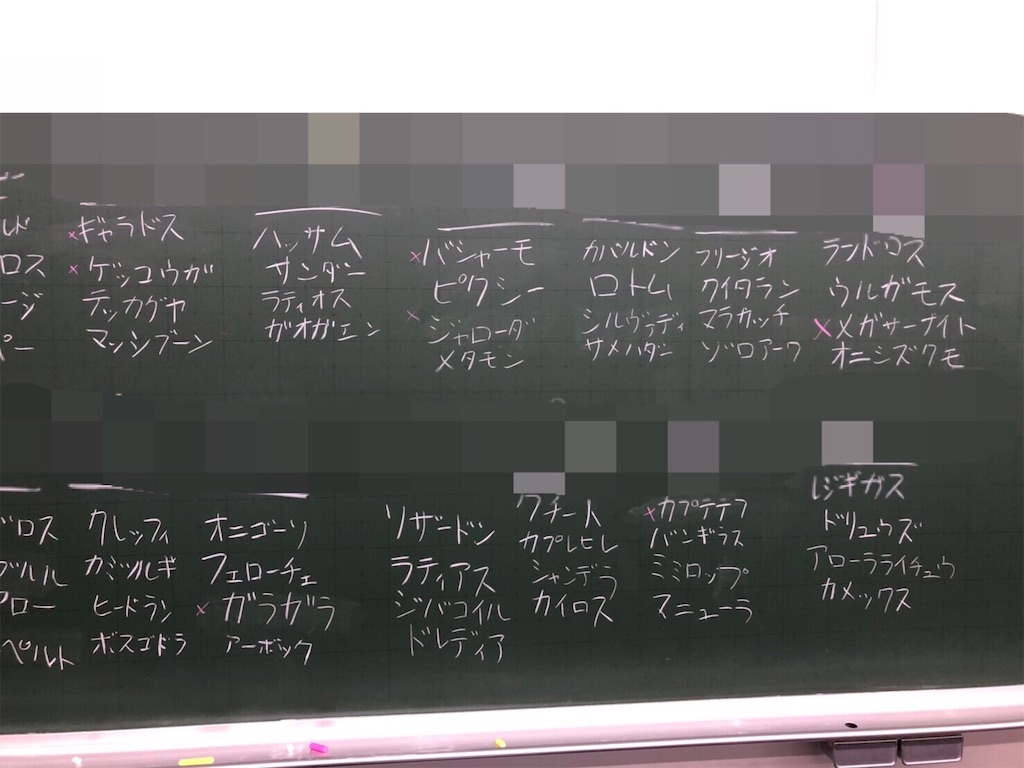 ルド
ロス
ージ
ペー
×ギャラドス
×ゲッコウガ
テッカグヤ
マッシブーン
ハッサム
サンダー
ラティオス
ガオガエン
×バシャーモ
ピクシー
×ジャローダ
メタモン
カバルドン
ロトム
シルヴァディ
サメハダー
フリージオ
クイタラン
マラカッチ
ゾロアーク
ランドロス
ウルガモス
×メガサーナイト
オニシズクモ
ロス
ブルル
アロー
ペルト
クレッフィ
カミツルギ
ヒードラン
ボスゴドラ
オニゴーリ
フェローチェ
×ガラガラ
アーボック
リザードン
ラティアス
ジバコイル
ドレディア
クチート
カプレヒレ
シャンデラ
カイロス
×カプテテフ
バンギラス
ミミロップ
マニューラ
レジギガス
ドリュウズ
アローラライチュウ
カメックス